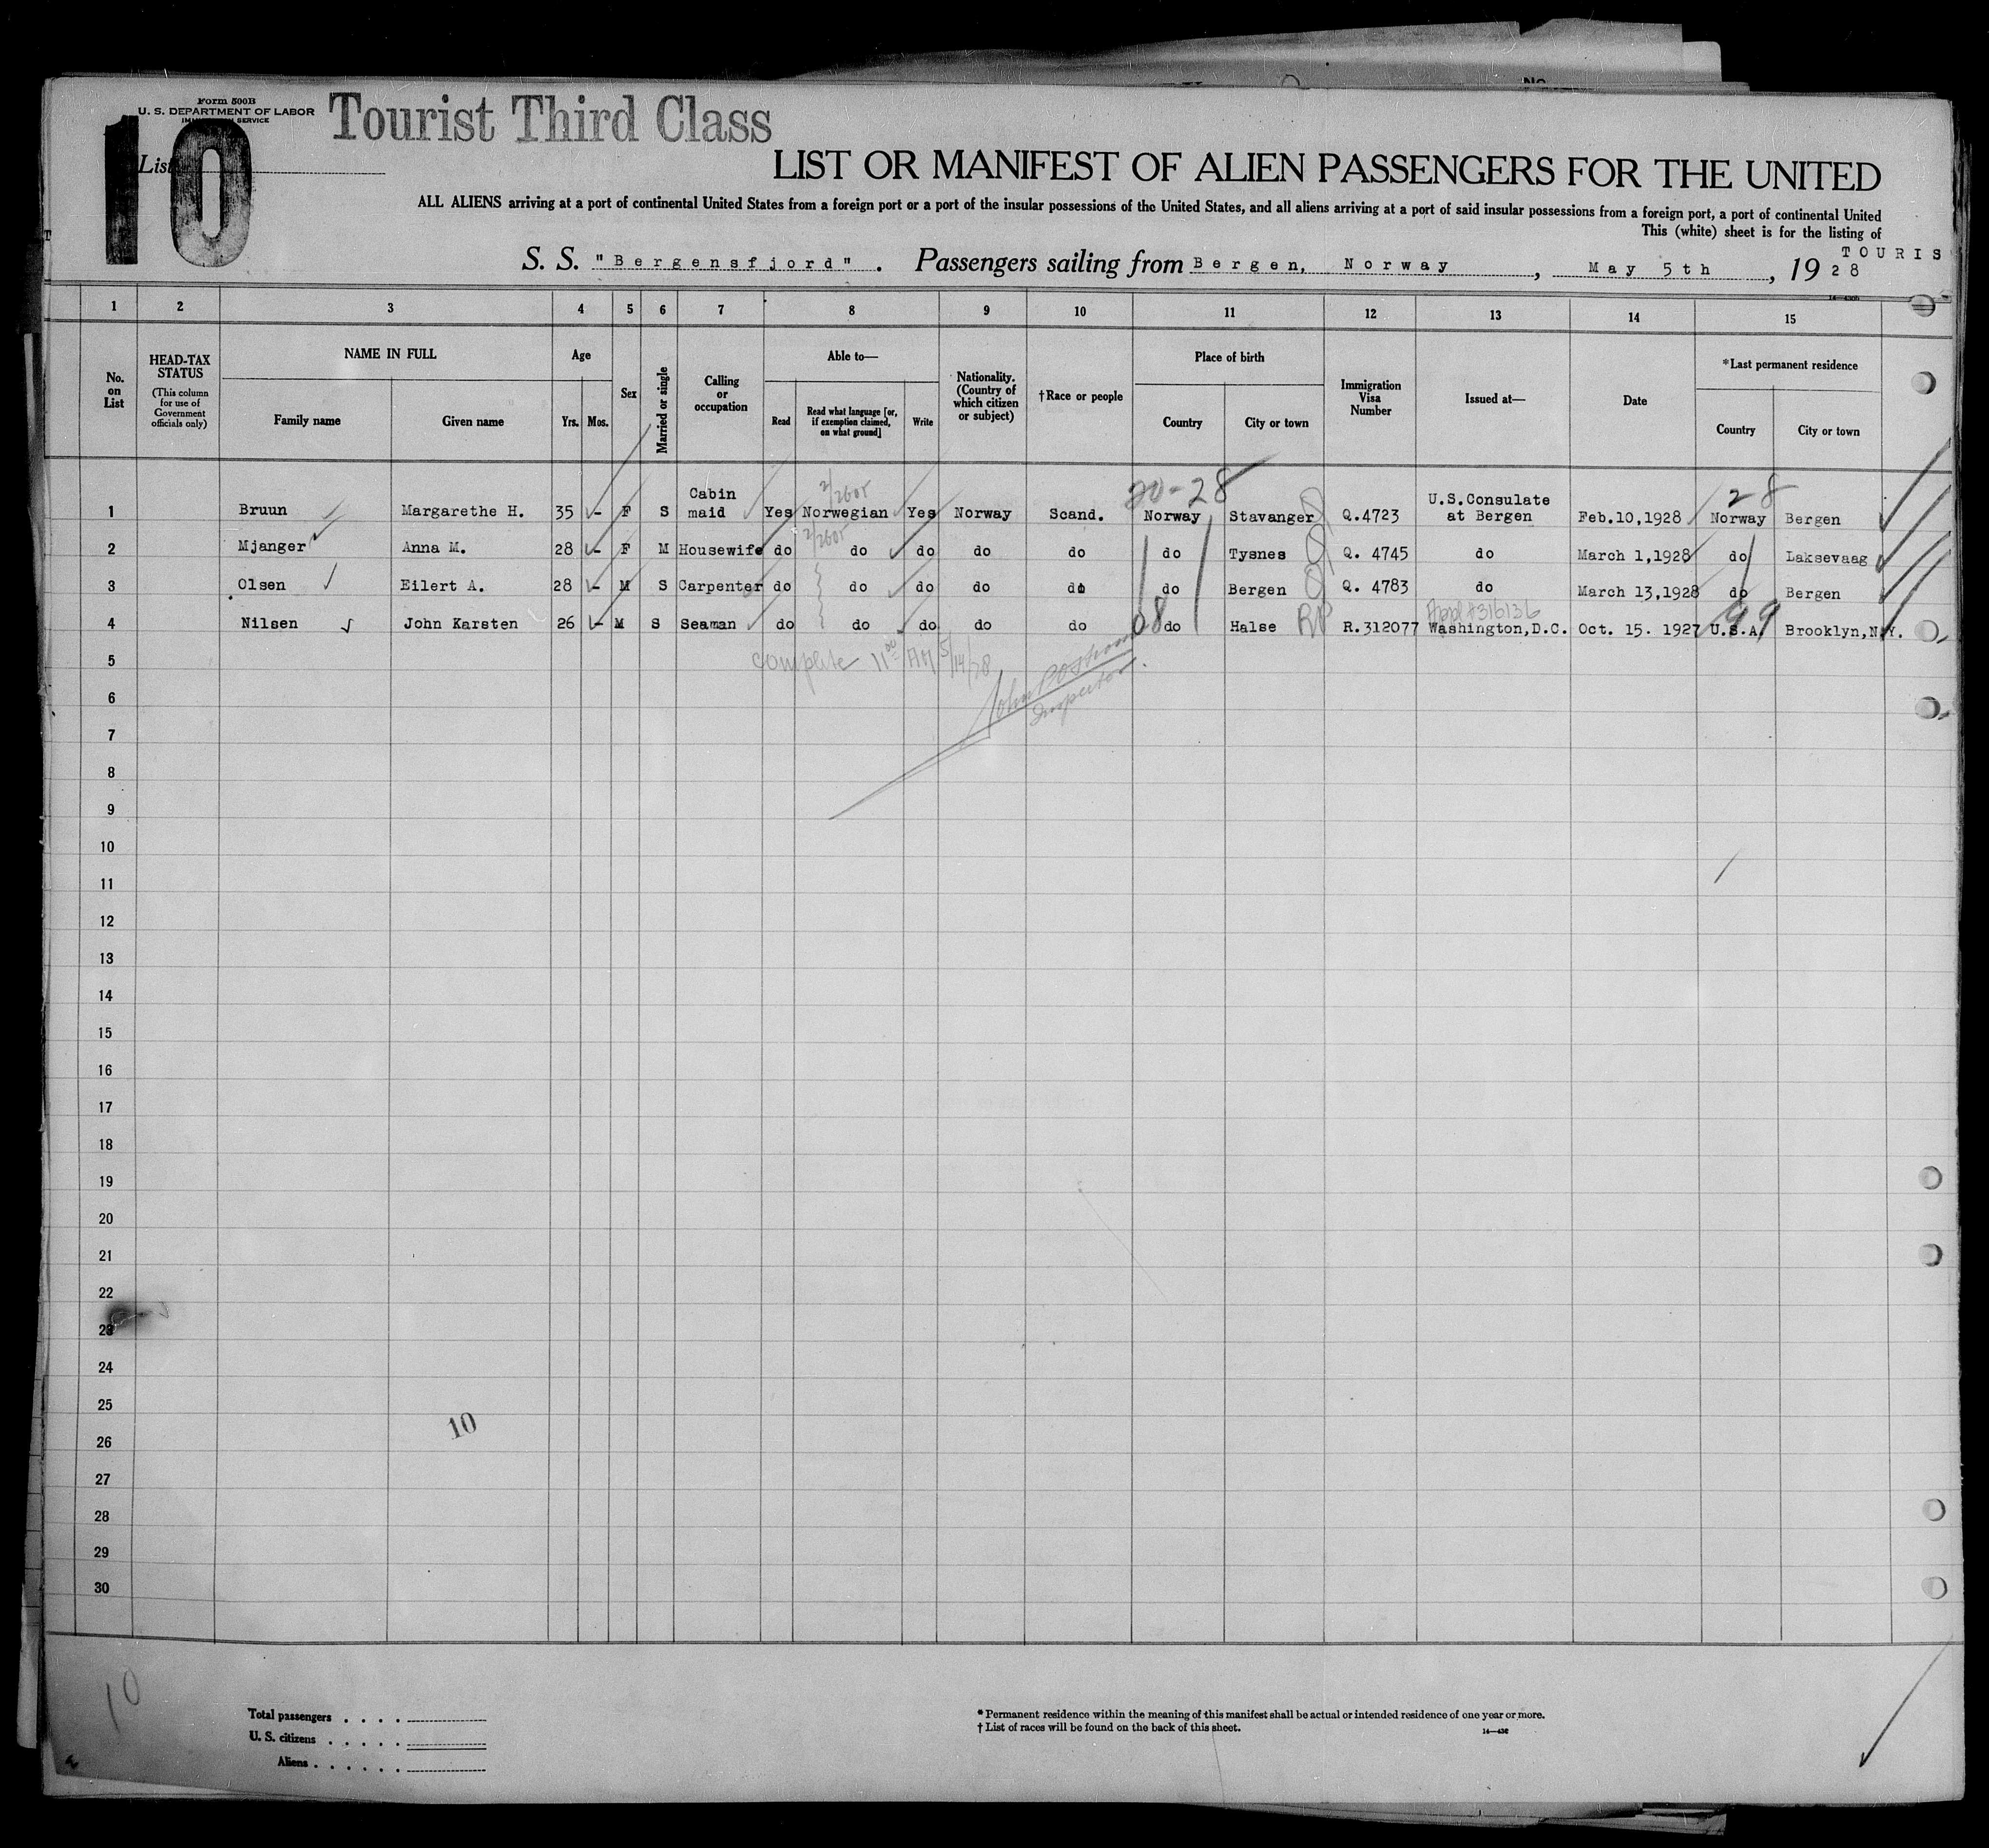 Form 500B
U. S. DEPARTMENT OF LABOR
SERVICE
Tourist Third Class
10
List
LIST OR MANIFEST OF ALIEN PASSENGERS FOR THE UNITED
ALL ALIENS arriving at a port of continental United States from a foreign port or a port of the insular possessions of the United States, and all aliens arriving at a port of said insular possessions from a foreign port, a port of continental United
This (white) sheet is for the listing of
TOURIS
S. S. "Bergensfjord". Passengers sailing from Bergen, Norway, May 5th, 1928
1 2 3 4 5 6 7 8 9 10 11 12 13 14 15
No. on List
HEAD-TAX STATUS
(This column for use of Government officials only)
NAME IN FULL
Family name
Given name
Age
Yrs.
Mos.
Sex
Married or single
Calling or occupation
Able to—
Read
Read what language [or, if exemption claimed, on what ground]
Write
Nationality. (Country of which citizen or subject)
†Race or people
Place of birth
Country
City or town
Immigration Visa Number
Issued at—
Date
*Last permanent residence
Country
City or town
20-28
28
1 Bruun Margarethe H. 35 - F S Cabin maid Yes Norwegian Yes Norway Scand. Norway Stavanger Q.4723 U.S.Consulate at Bergen Feb.10,1928 Norway Bergen
2 Mjanger Anna M. 28 - F M Housewife do do do do do do Tysnes Q. 4745 do March 1,1928 do Laksevaag
3 Olsen Eilert A. 28 - M S Carpenter do do do do do do Bergen Q. 4783 do March 13,1928 do Bergen
08 RP Appl #316136 99
4 Nilsen John Karsten 26 - M S Seaman do do do do do do Halse R.312077 Washington,D.C. Oct. 15. 1927 U.S.A. Brooklyn,N.Y.
5
complete 11 00 AM 5/14/28
John
Inspector
6
7
8
9
10
11
12
13
14
15
16
17
18
19
20
21
22
23
24
25
10
26
27
28
29
30
10
Total passengers . . . .
U. S. citizens . . . . .
Aliens . . . . . .
* Permanent residence within the meaning of this manifest shall be actual or intended residence of one year or more.
† List of races will be found on the back of this sheet.